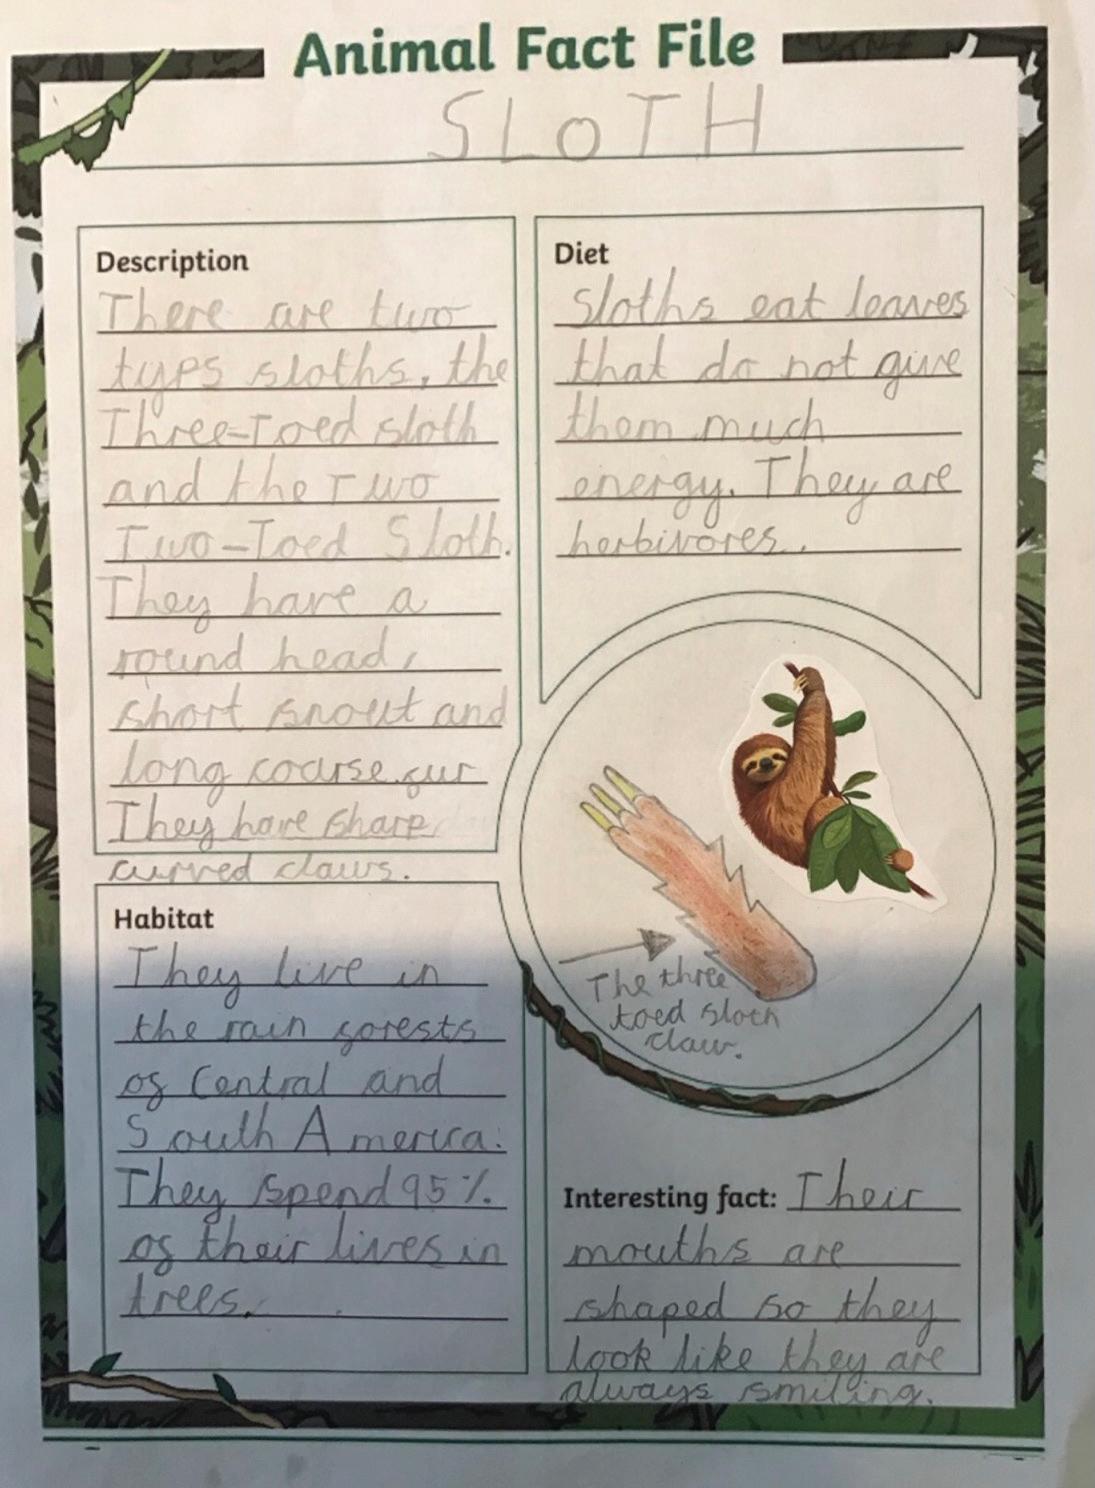 Animal Fact File
SLOTH
Description
There are two
typs sloths, the
Three-Toed sloth
and the Two
Two-Toed Sloth.
They have a
round head,
short snout and
long coarse fur
They have sharp
curved claws.
Diet
Sloths eat leaves
that do not give
them much
energy. They are
herbivores.
The three
toed sloth
claw.
Habitat
They live in
the rain forests
of Central and
South America.
They spend 95%
of their lives in
trees.
Interesting fact: Their
mouths are
shaped so they
look like they are
always smiling.